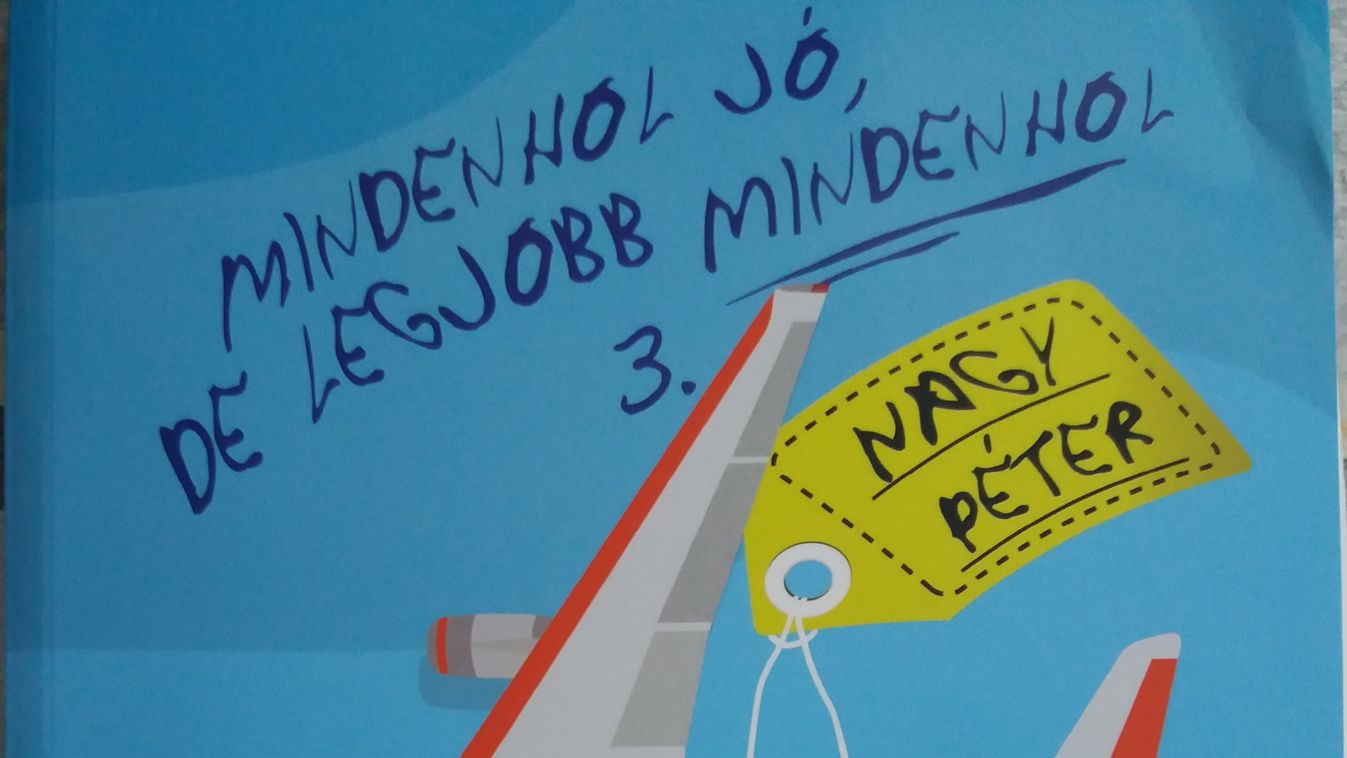 MINDENHOL JÓ,
DE LEGJOBB MINDENHOL
3.
NAGY
PÉTER